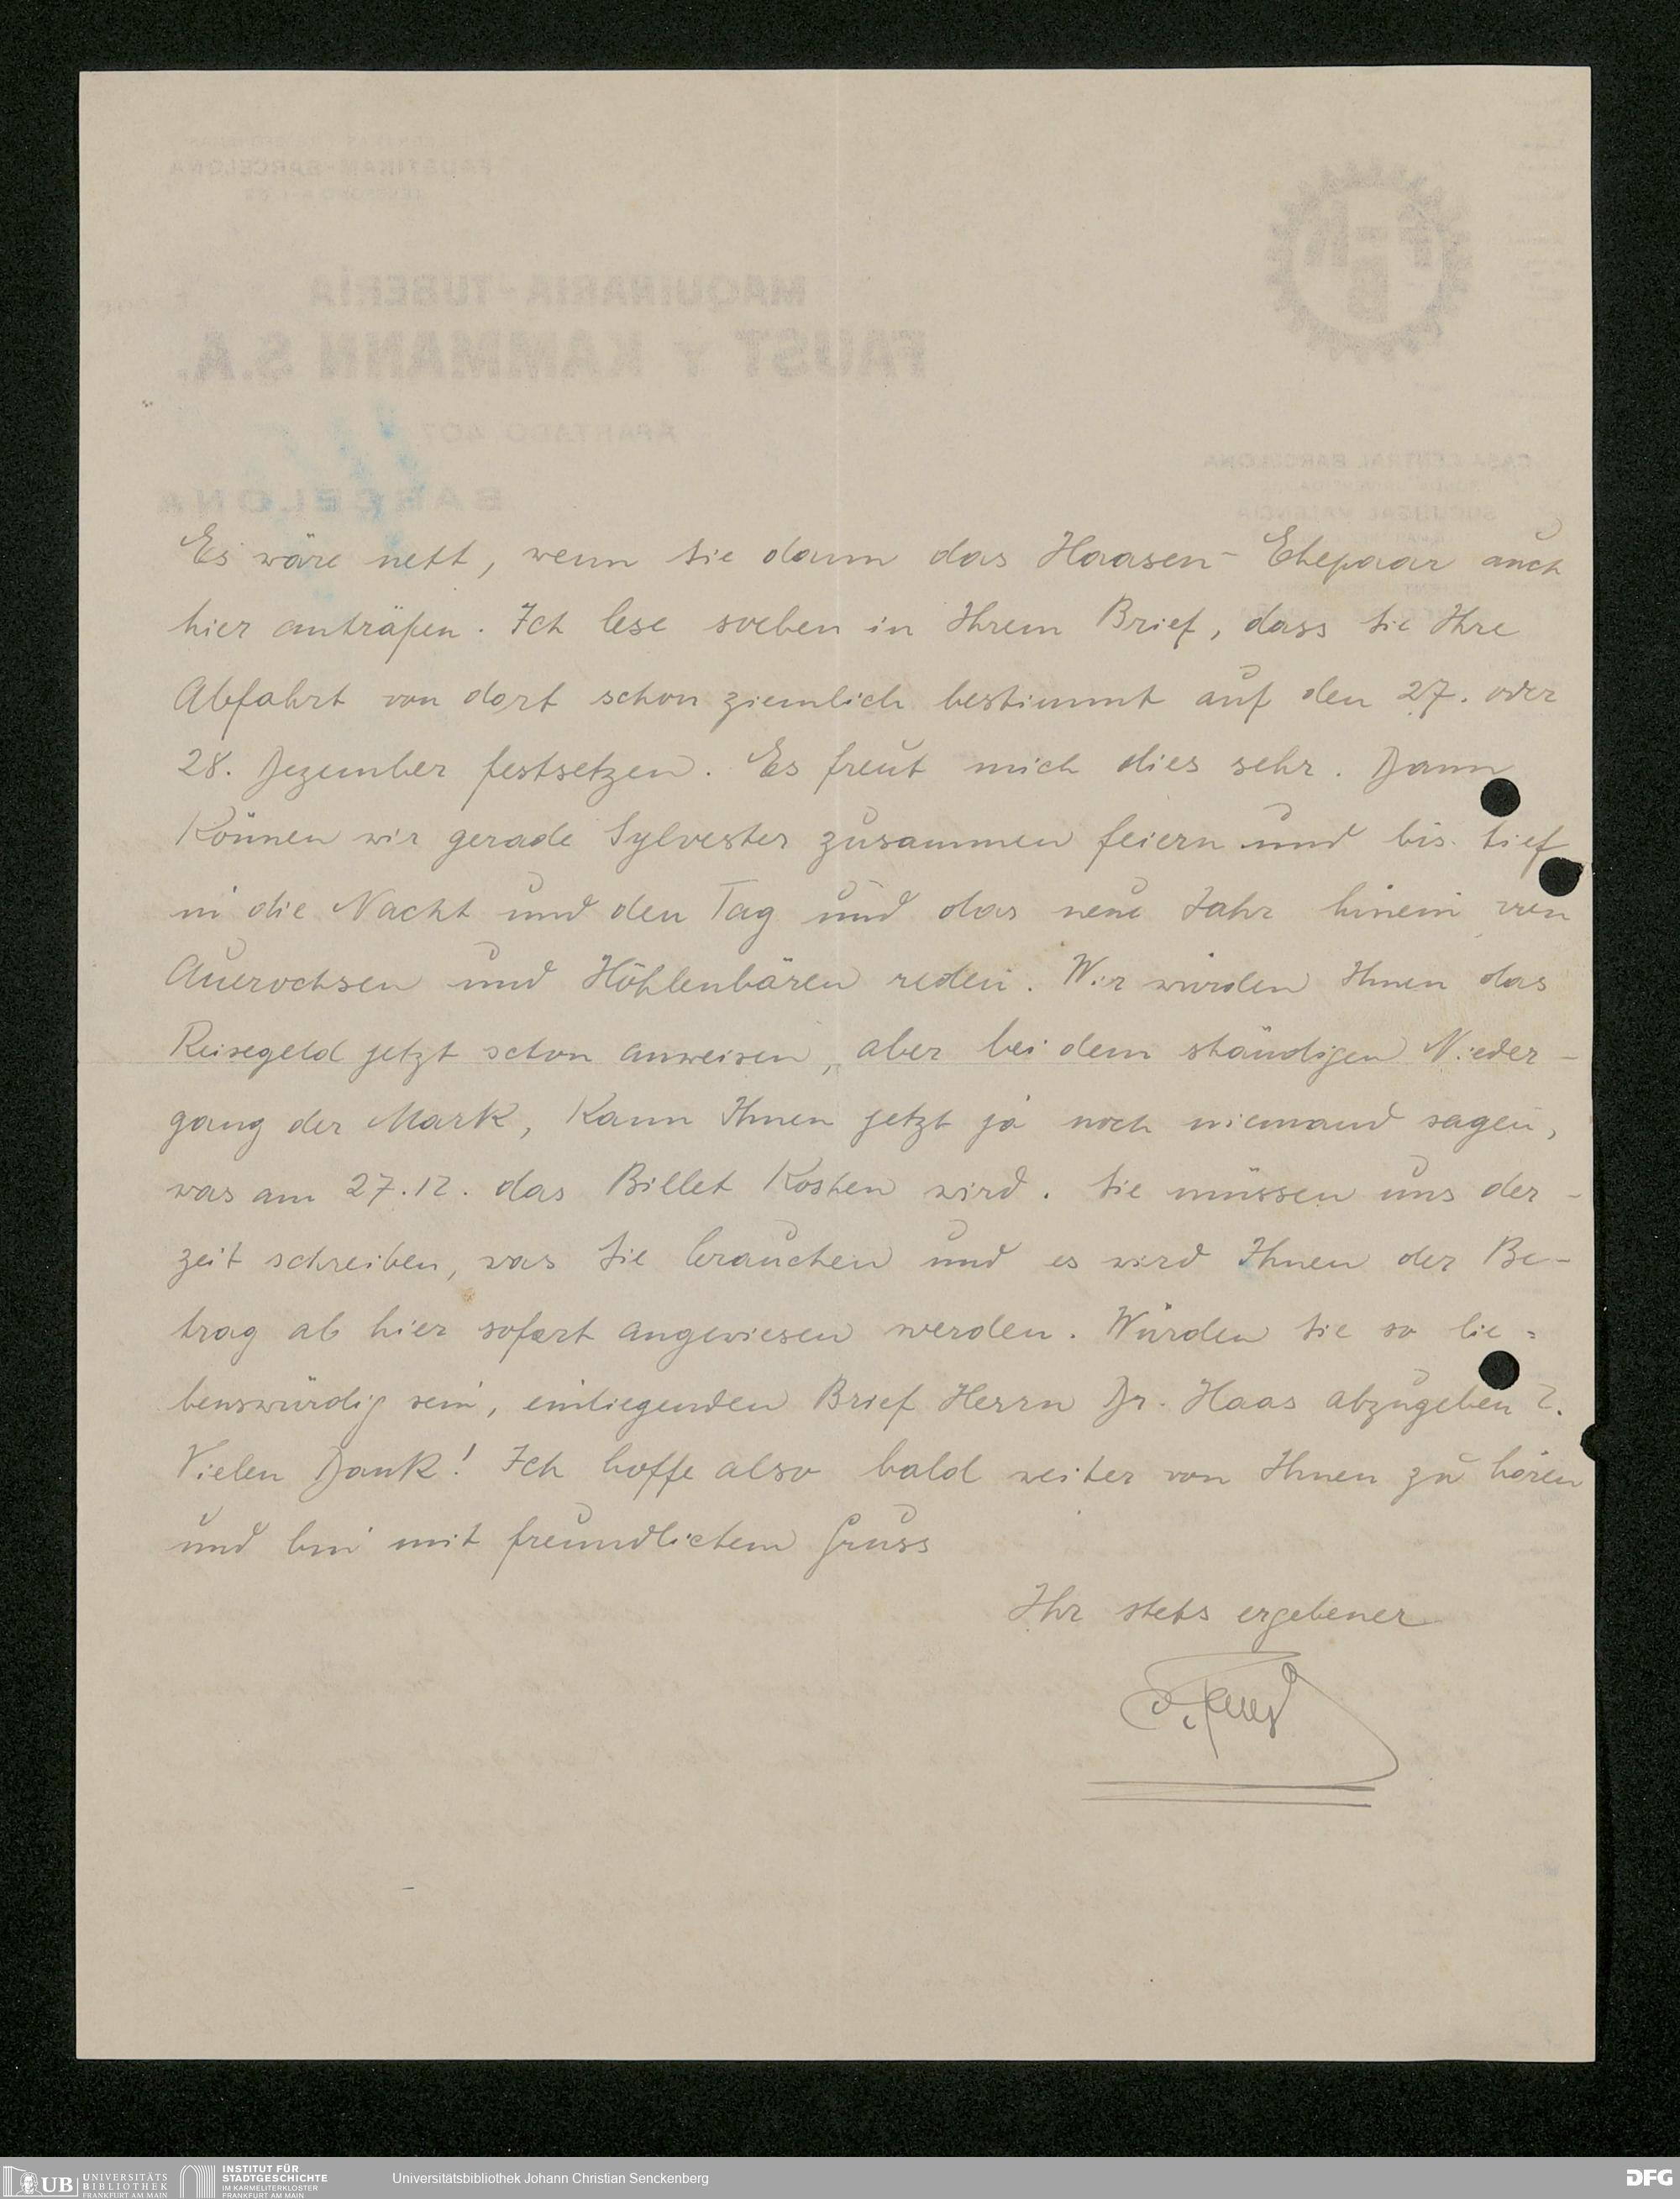 Es wäre nett, wenn Sie dann das Haasen-Ehepaar auch
hier anträfen. Ich lese soeben in Ihrem Brief, dass Sie Ihre
Abfahrt von dort schon ziemlich bestimmt auf den 27. oder
28. Dezember festsetzen. Es freut mich dies sehr. Dann
können wir gerade Sylvester zusammen feiern und bis tief
in die Nacht und den Tag und das neue Jahr hinein von
Auerochsen und Höhlenbären reden. Wir würden Ihnen das
Reisegeld jetzt schon anweisen, aber bei dem ständigen Nieder-
gang der Mark, kann Ihnen jetzt ja noch niemand sagen,
was am 27.12. das Billet kosten wird. Sie müssen uns der-
zeit schreiben, was Sie brauchen und es wird Ihnen der Be-
trag ab hier sofort angewiesen werden. Würden Sie so lie=
benswürdig sein, einliegenden Brief Herrn Dr. Haas abzugeben?
Vielen Dank! Ich hoffe also bald weiter von Ihnen zu hören
und bin mit freundlichem Gruss
Ihr stets ergebener
FAUSTIKAM-BARCELONA
MAQUINARIA-TUBERÍA
FAUST Y KAMMANN S.A.
APARTADO 407
BARCELONA
CASA CENTRAL BARCELONA
SUCURSAL VALENCIA
UB UNIVERSITÄTS
BIBLIOTHEK
FRANKFURT AM MAIN
INSTITUT FÜR
STADTGESCHICHTE
IM KARMELITERKLOSTER
FRANKFURT AM MAIN
Universitätsbibliothek Johann Christian Senckenberg
DFG